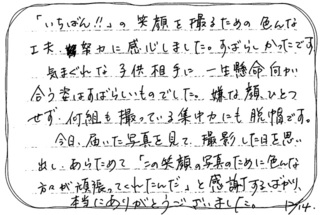 「いちばん!!」の笑顔を撮るための色んな
工夫、努力に感心しました。すばらしかったです
気まぐれな子供相手に一生懸命向かい
合う姿はすばらしいものでした。嫌な顔ひとつ
せず何組も撮っている集中力にも脱帽です。
今日、届いた写真を見て、撮影した日を思い
出し、あらためて「この笑顔の写真のために色んな
方々が頑張ってくれたんだ」と感謝するばかり、
本当にありがとうございました。 12/14.